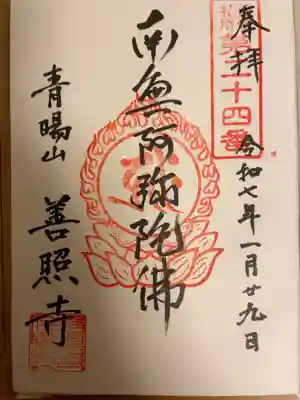 奉拝
第二十四番
令和七年一月廿九日
南無阿弥陀佛
青陽山
善照寺